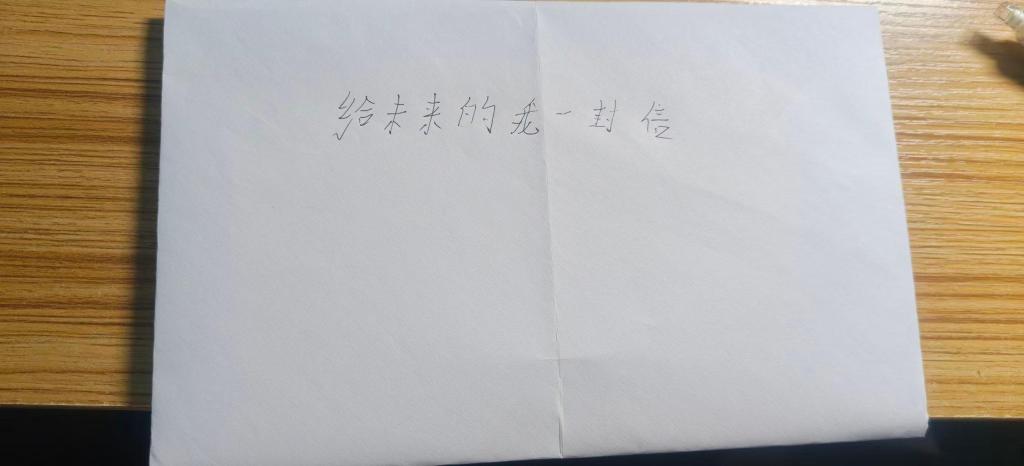 给未来的我一封信